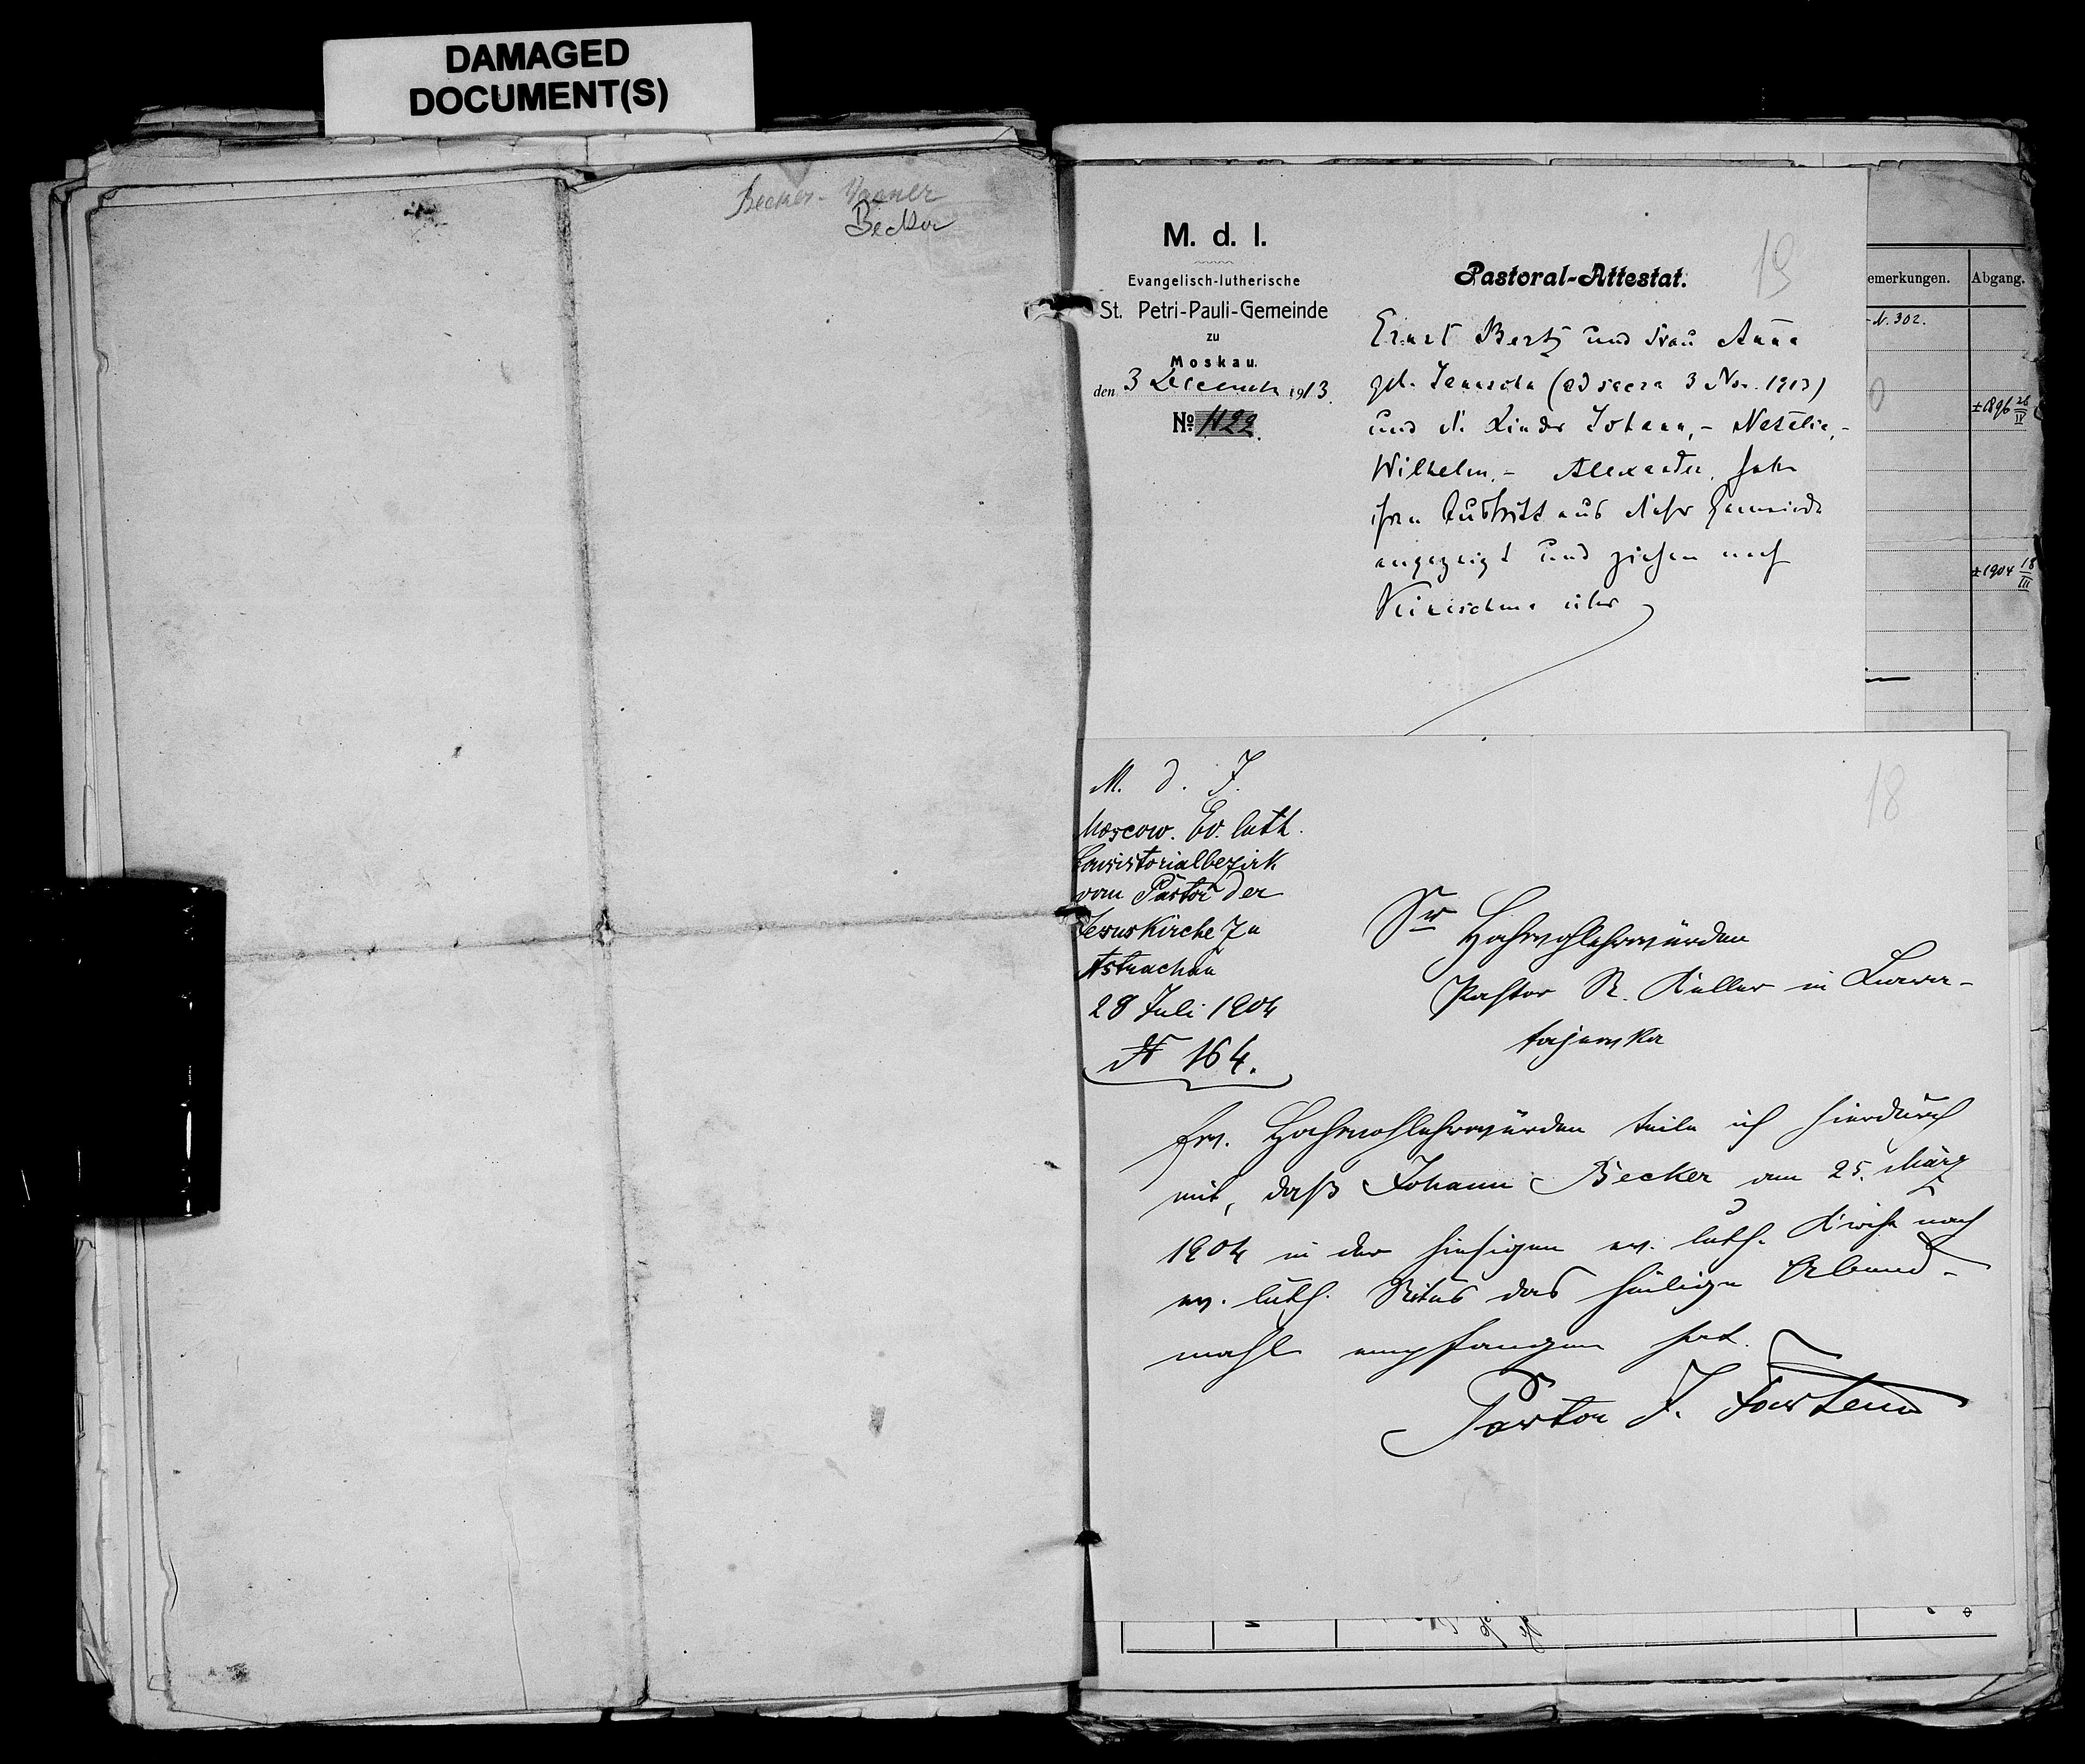 DAMAGED
DOCUMENT(S)
Becker
M. d. I.
Evangelisch-lutherische
St. Petri-Pauli-Gemeinde
zu
Moskau.
den 3 December 1913.
№ 1122.
Pastoral-Attestat.
19
Ernst Bertz und Frau Anna
geb. (ad sacra 3 Nov. 1913)
und die Kinder Johann, - Natalie, -
Wilhelm, - Alexander, haben
ihren Austritt aus dieser Gemeinde
angezeigt und ziehen nach
über
emerkungen.
Abgang.
N. 302.
±1896 26/IV
±1904 18/III
M. d. I.
Moscow. Ev. luth.
Consistorialbezirk
vom Pastor der
Jesuskirche zu
Astrachan
28 Juli 1904
№ 164.
18
Sr Hochwohlehrwürden
Pastor R. Keller in
Ew. Hochwohlehrwürden teile ich hierdurch
mit, daß Johann Becker am 25. März
1904 in der hiesigen ev. luth. Kirche nach
ev. luth. Ritus das heilige Abend-
mahl empfangen hat.
Pastor J.